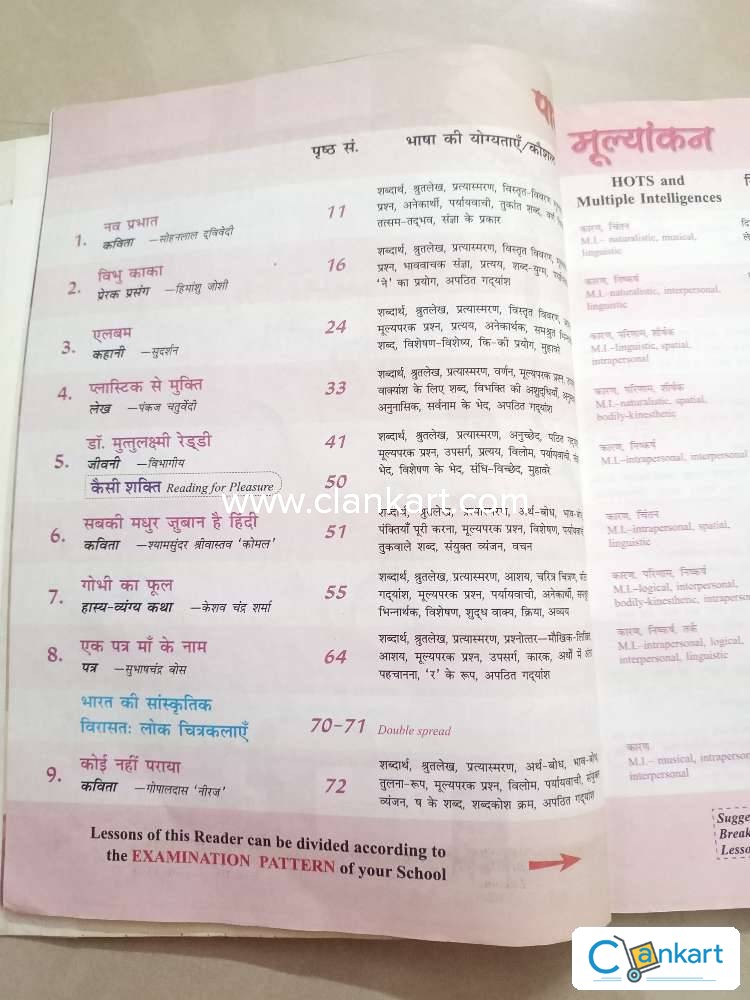 पृष्ठ सं. भाषा की योग्यताएँ/कौशल
मूल्यांकन
HOTS and
Multiple Intelligences
1. नव प्रभात
कविता —सोहनलाल द्विवेदी
11
शब्दार्थ, श्रुतलेख, प्रत्यास्मरण, विस्तृत-विवरण,
प्रश्न, अनेकार्थी, पर्यायवाची, तुकांत शब्द, वर्ण
तत्सम-तद्भव, संज्ञा के प्रकार
कारण, चिंतन
M.I.– naturalistic, musical,
linguistic
2. विभु काका
प्रेरक प्रसंग —हिमांशु जोशी
16
शब्दार्थ, श्रुतलेख, प्रत्यास्मरण, विस्तृत विवरण,
प्रश्न, भाववाचक संज्ञा, प्रत्यय, शब्द-युग्म,
'ने' का प्रयोग, अपठित गद्यांश
कारण, निष्कर्ष
M.I.–naturalistic, interpersonal,
linguistic
3. एलबम
कहानी —सुदर्शन
24
शब्दार्थ, श्रुतलेख, प्रत्यास्मरण, विस्तृत विवरण,
मूल्यपरक प्रश्न, प्रत्यय, अनेकार्थक, समश्रुत
शब्द, विशेषण-विशेष्य, कि-की प्रयोग, मुहावरे
कारण, परिणाम, शीर्षक
M.I.–linguistic, spatial,
intrapersonal
4. प्लास्टिक से मुक्ति
लेख —पंकज चतुर्वेदी
33
शब्दार्थ, श्रुतलेख, प्रत्यास्मरण, वर्णन, मूल्यपरक प्रश्न,
वाक्यांश के लिए शब्द, विभक्ति की अशुद्धियाँ,
अनुनासिक, सर्वनाम के भेद, अपठित गद्यांश
कारण, परिणाम, शीर्षक
M.I.–naturalistic, spatial,
bodily-kinesthetic
5. डॉ. मुत्तुलक्ष्मी रेड्डी
जीवनी —विभागीय
41
शब्दार्थ, श्रुतलेख, प्रत्यास्मरण, अनुच्छेद, पठित
मूल्यपरक प्रश्न, उपसर्ग, प्रत्यय, विलोम, पर्यायवाची,
भेद, विशेषण के भेद, संधि-विच्छेद, मुहावरे
कारण, निष्कर्ष
M.I.–intrapersonal, interpersonal
कैसी शक्ति Reading for Pleasure 50
www.clankart.com
6. सबकी मधुर ज़ुबान है हिंदी
कविता —श्यामसुंदर श्रीवास्तव 'कोमल'
51
शब्दार्थ, श्रुतलेख, प्रत्यास्मरण, अर्थ-बोध,
पंक्तियाँ पूरी करना, मूल्यपरक प्रश्न, विशेषण,
तुकवाले शब्द, संयुक्त व्यंजन, वचन
कारण, चिंतन
M.I.–intrapersonal, spatial,
linguistic
7. गोभी का फूल
हास्य-व्यंग्य कथा —केशव चंद्र शर्मा
55
शब्दार्थ, श्रुतलेख, प्रत्यास्मरण, आशय, चरित्र चित्रण,
गद्यांश, मूल्यपरक प्रश्न, पर्यायवाची, अनेकार्थी,
भिन्नार्थक, विशेषण, शुद्ध वाक्य, क्रिया, अव्यय
कारण, परिणाम, निष्कर्ष
M.I.–logical, interpersonal,
bodily-kinesthetic,
8. एक पत्र माँ के नाम
पत्र —सुभाषचंद्र बोस
64
शब्दार्थ, श्रुतलेख, प्रत्यास्मरण, प्रश्नोत्तर—मौखिक-लिखित,
आशय, मूल्यपरक प्रश्न, उपसर्ग, कारक, अर्थों में
पहचानना, 'र' के रूप, अपठित गद्यांश
कारण, निष्कर्ष, तर्क
M.I.–intrapersonal, logical,
interpersonal, linguistic
भारत की सांस्कृतिक
विरासतः लोक चित्रकलाएँ 70-71 Double spread
9. कोई नहीं पराया
कविता —गोपालदास 'नीरज'
72
शब्दार्थ, श्रुतलेख, प्रत्यास्मरण, अर्थ-बोध,
तुलना-रूप, मूल्यपरक प्रश्न, विलोम, पर्यायवाची,
व्यंजन, ष के शब्द, शब्दकोश क्रम, अपठित गद्यांश
कारण
M.I.– musical,
interpersonal
Lessons of this Reader can be divided according to
the EXAMINATION PATTERN of your School
Clankart